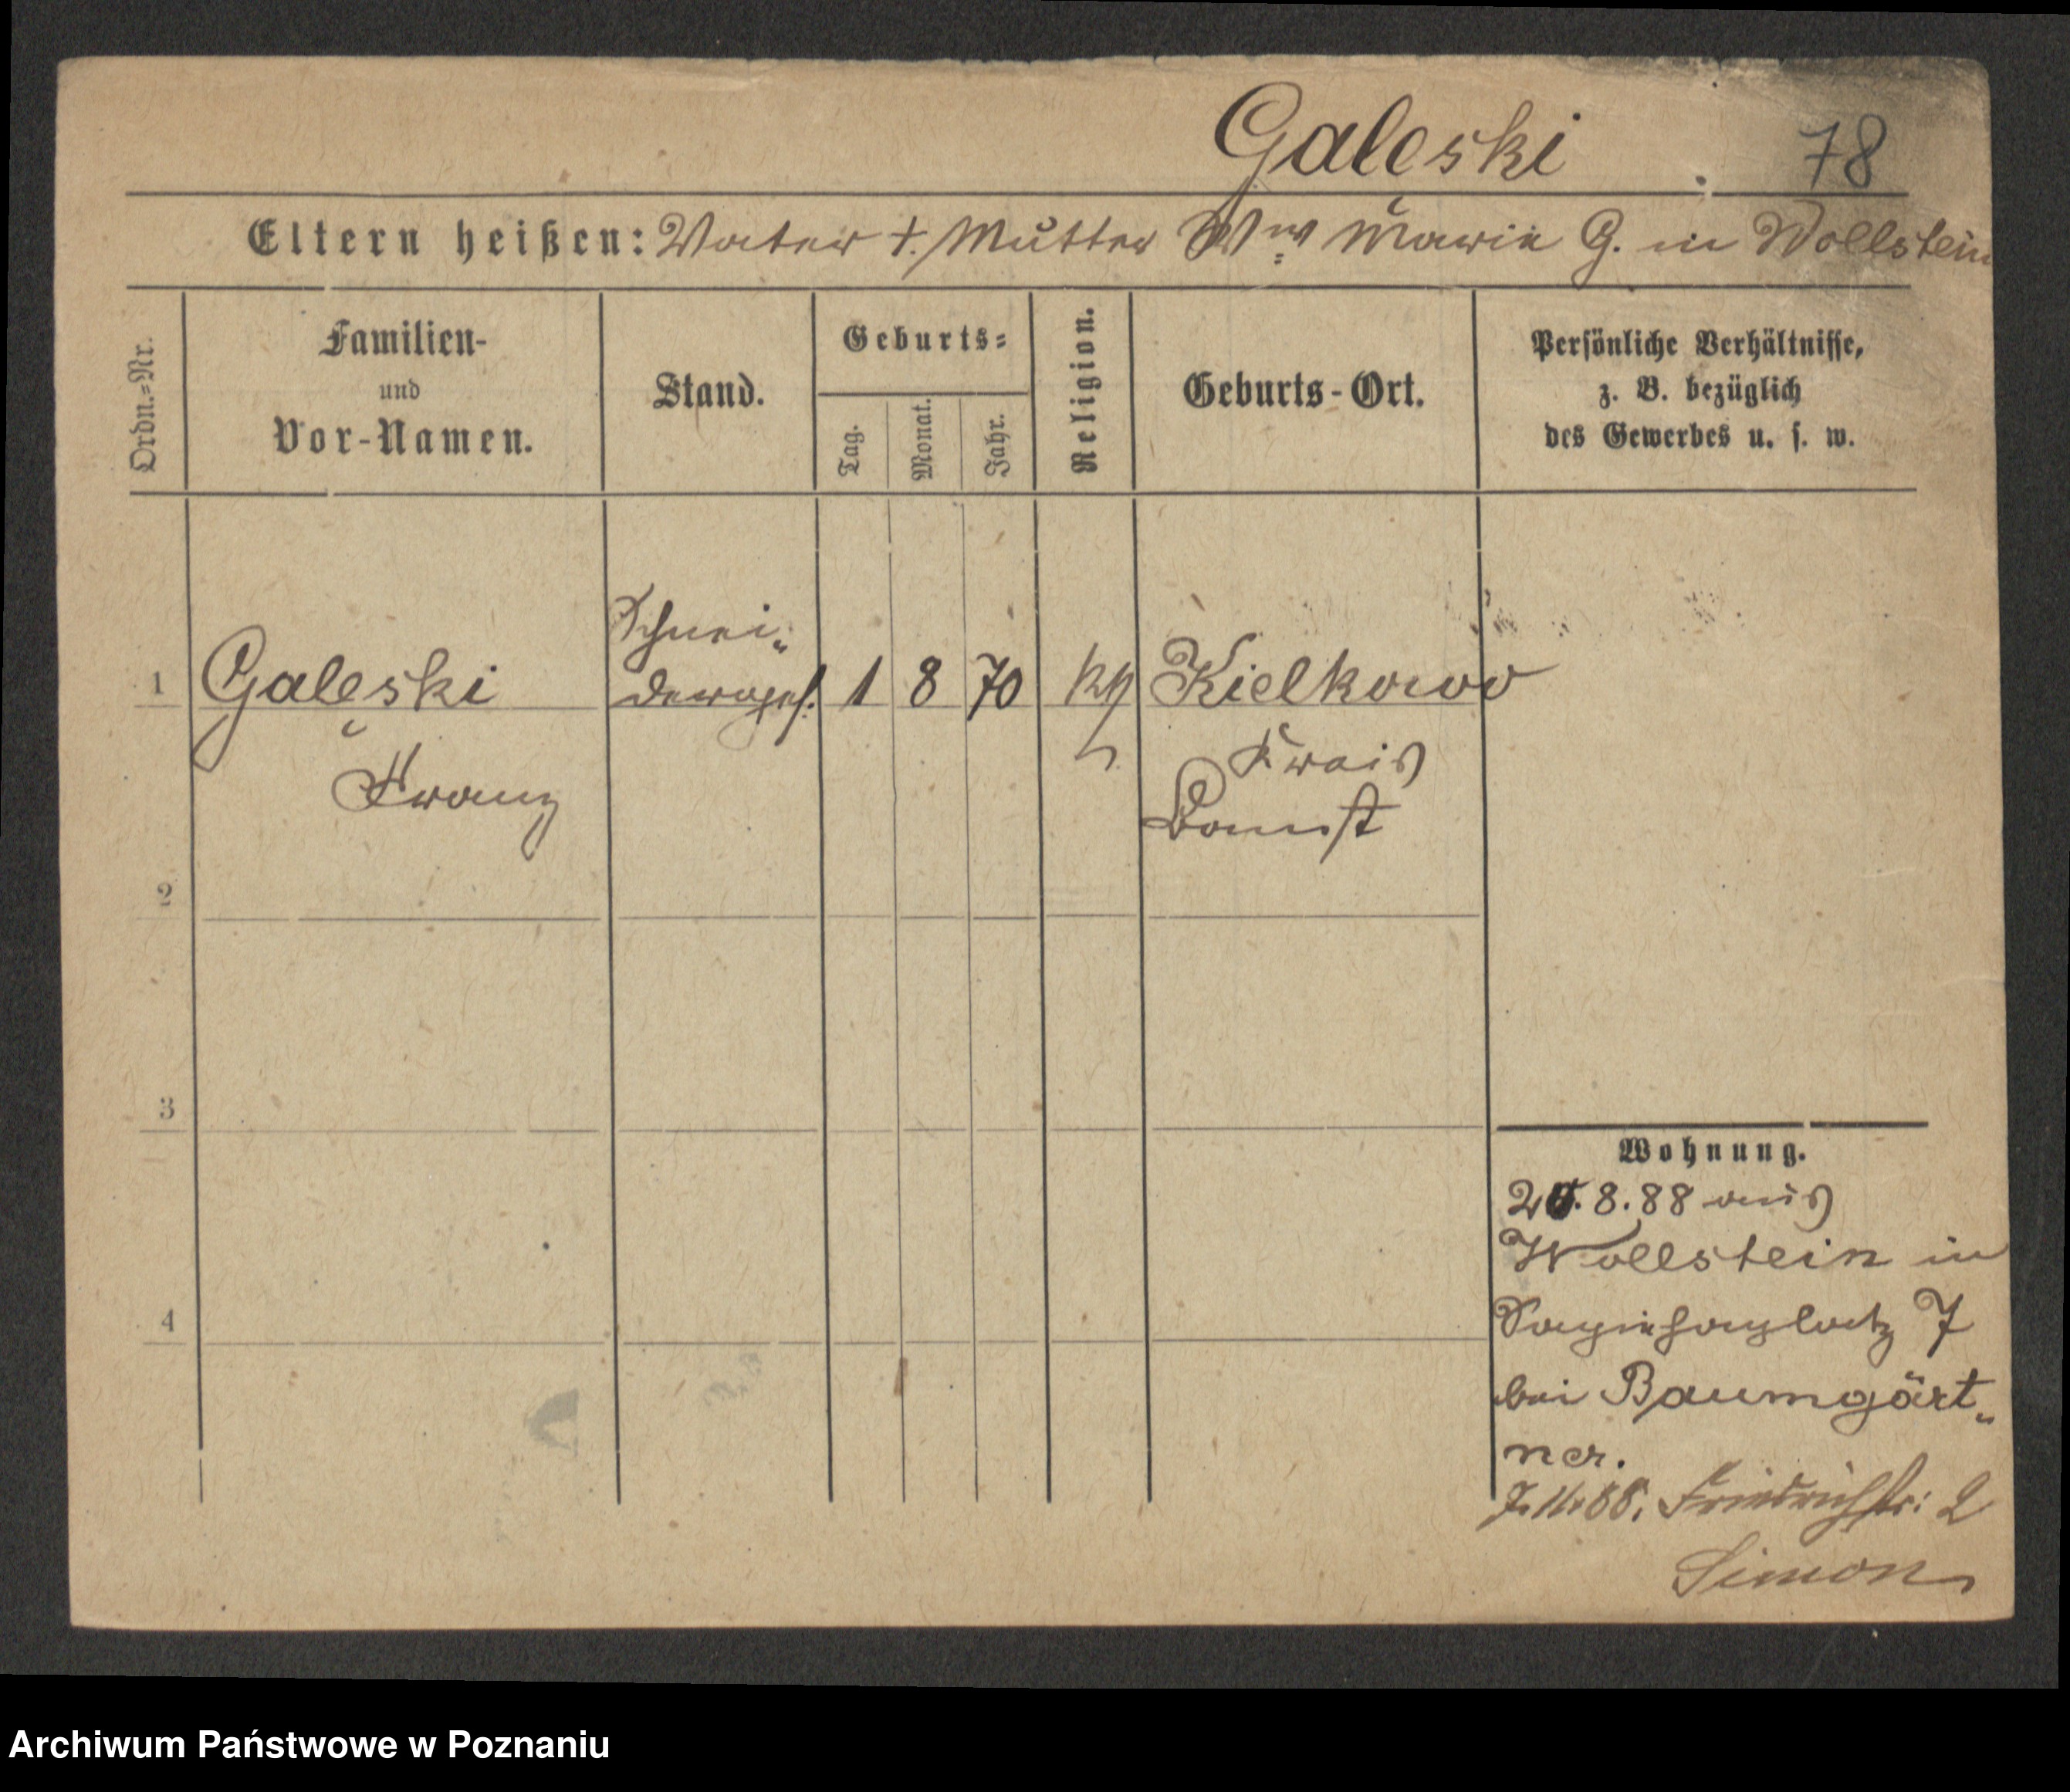 Galeski 78
Eltern heißen: Vater †. Mutter Ww Marie G. in Wollstein
Ordn.=Nr.
Familien-
und
Vor-Namen.
Stand.
Geburts=
Tag.
Monat.
Jahr.
Religion.
Geburts-Ort.
Persönliche Verhältnisse,
z. B. bezüglich
des Gewerbes u. s. w.
Schnei„
1 Galęski derges. 1 8 70 kth Kielkowo
Franz
Kreis
Bomst
2
3
4
Wohnung.
8.88 aus
Wollstein in
Sapiehaplatz 7
bei Baumgärt„
ner.
7.11.88. Friedrichstr: 2
Simon
Archiwum Państwowe w Poznaniu